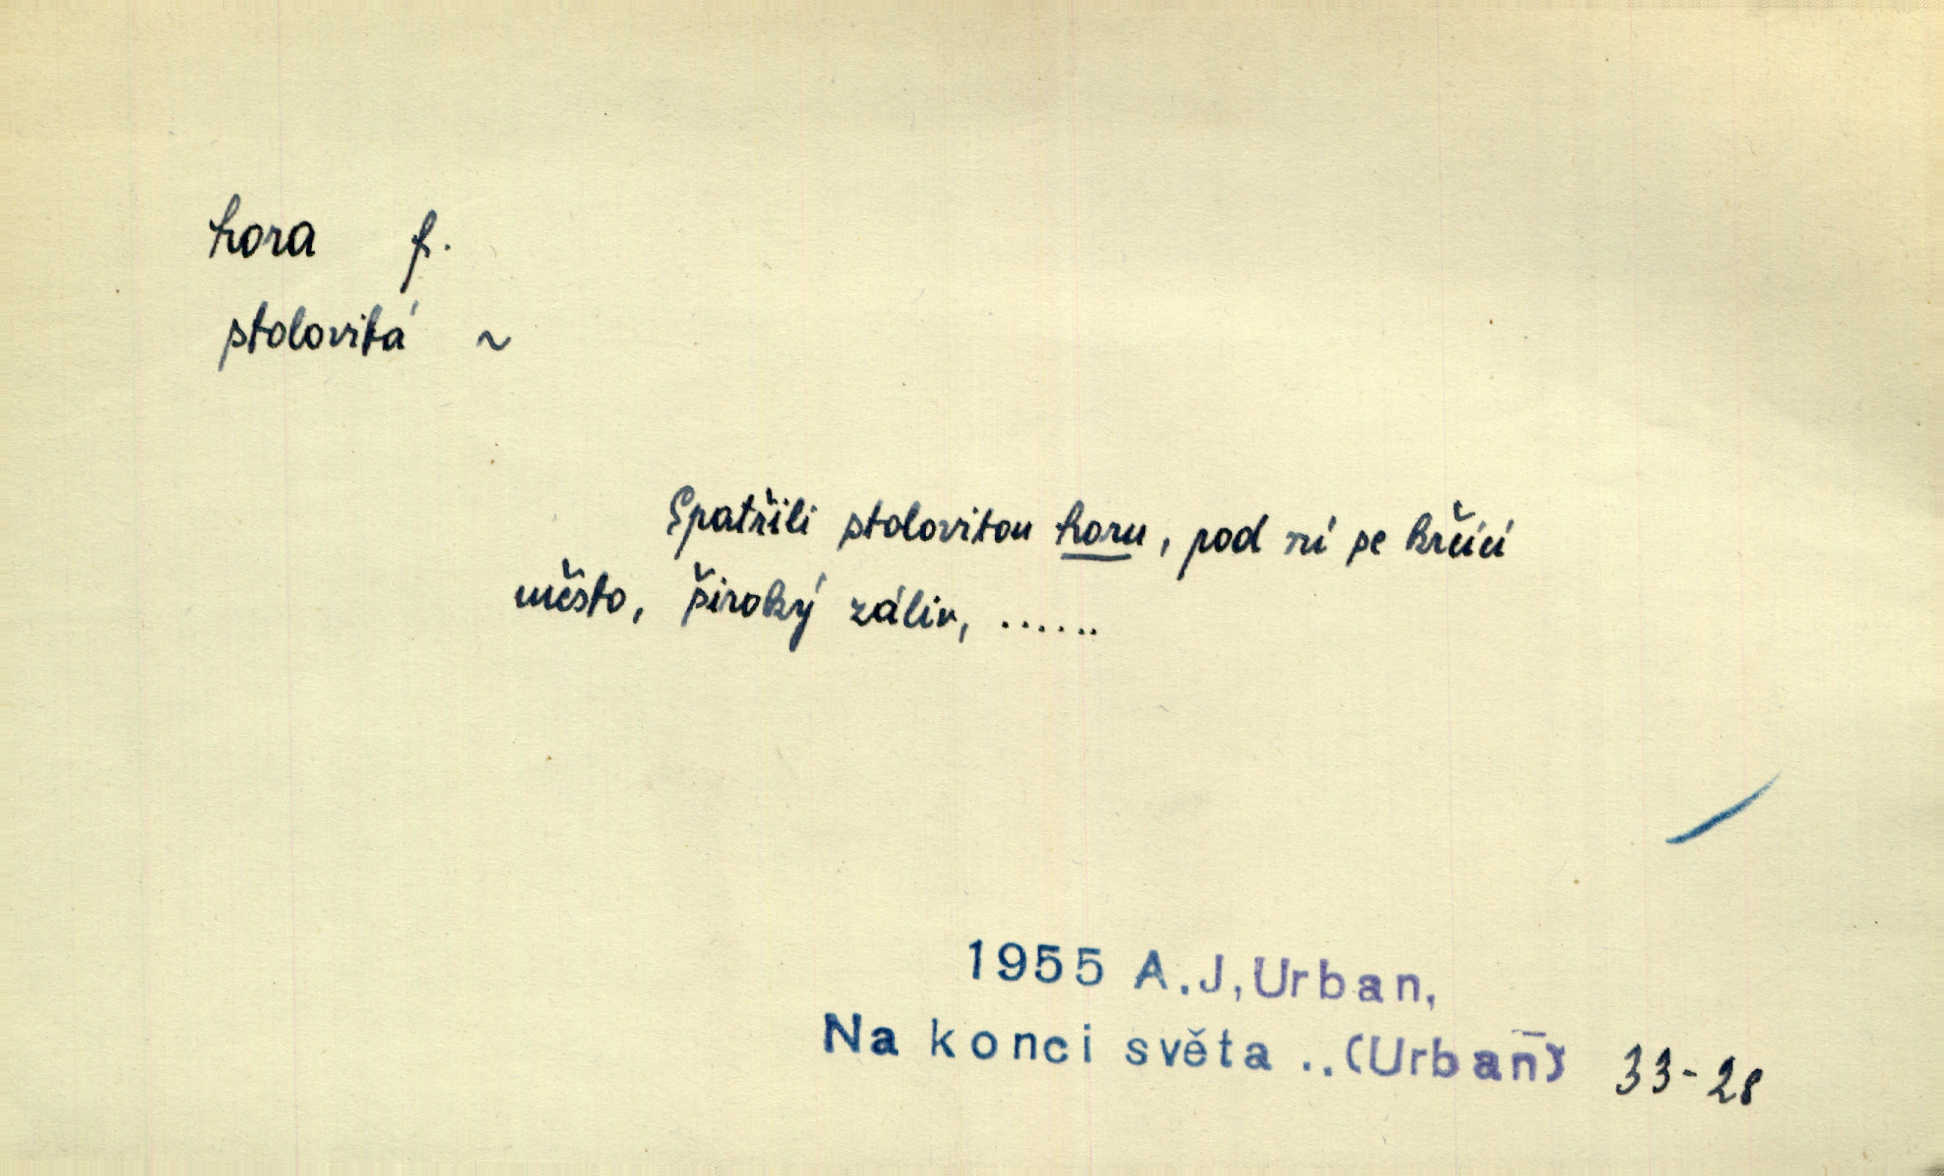 hora f.
stolovitá ~
Spatřili stolovitou horu, pod ní se krčící
město, široký záliv, ......
1955 A.J,Urban,
Na konci světa ..(Urban) 33-28